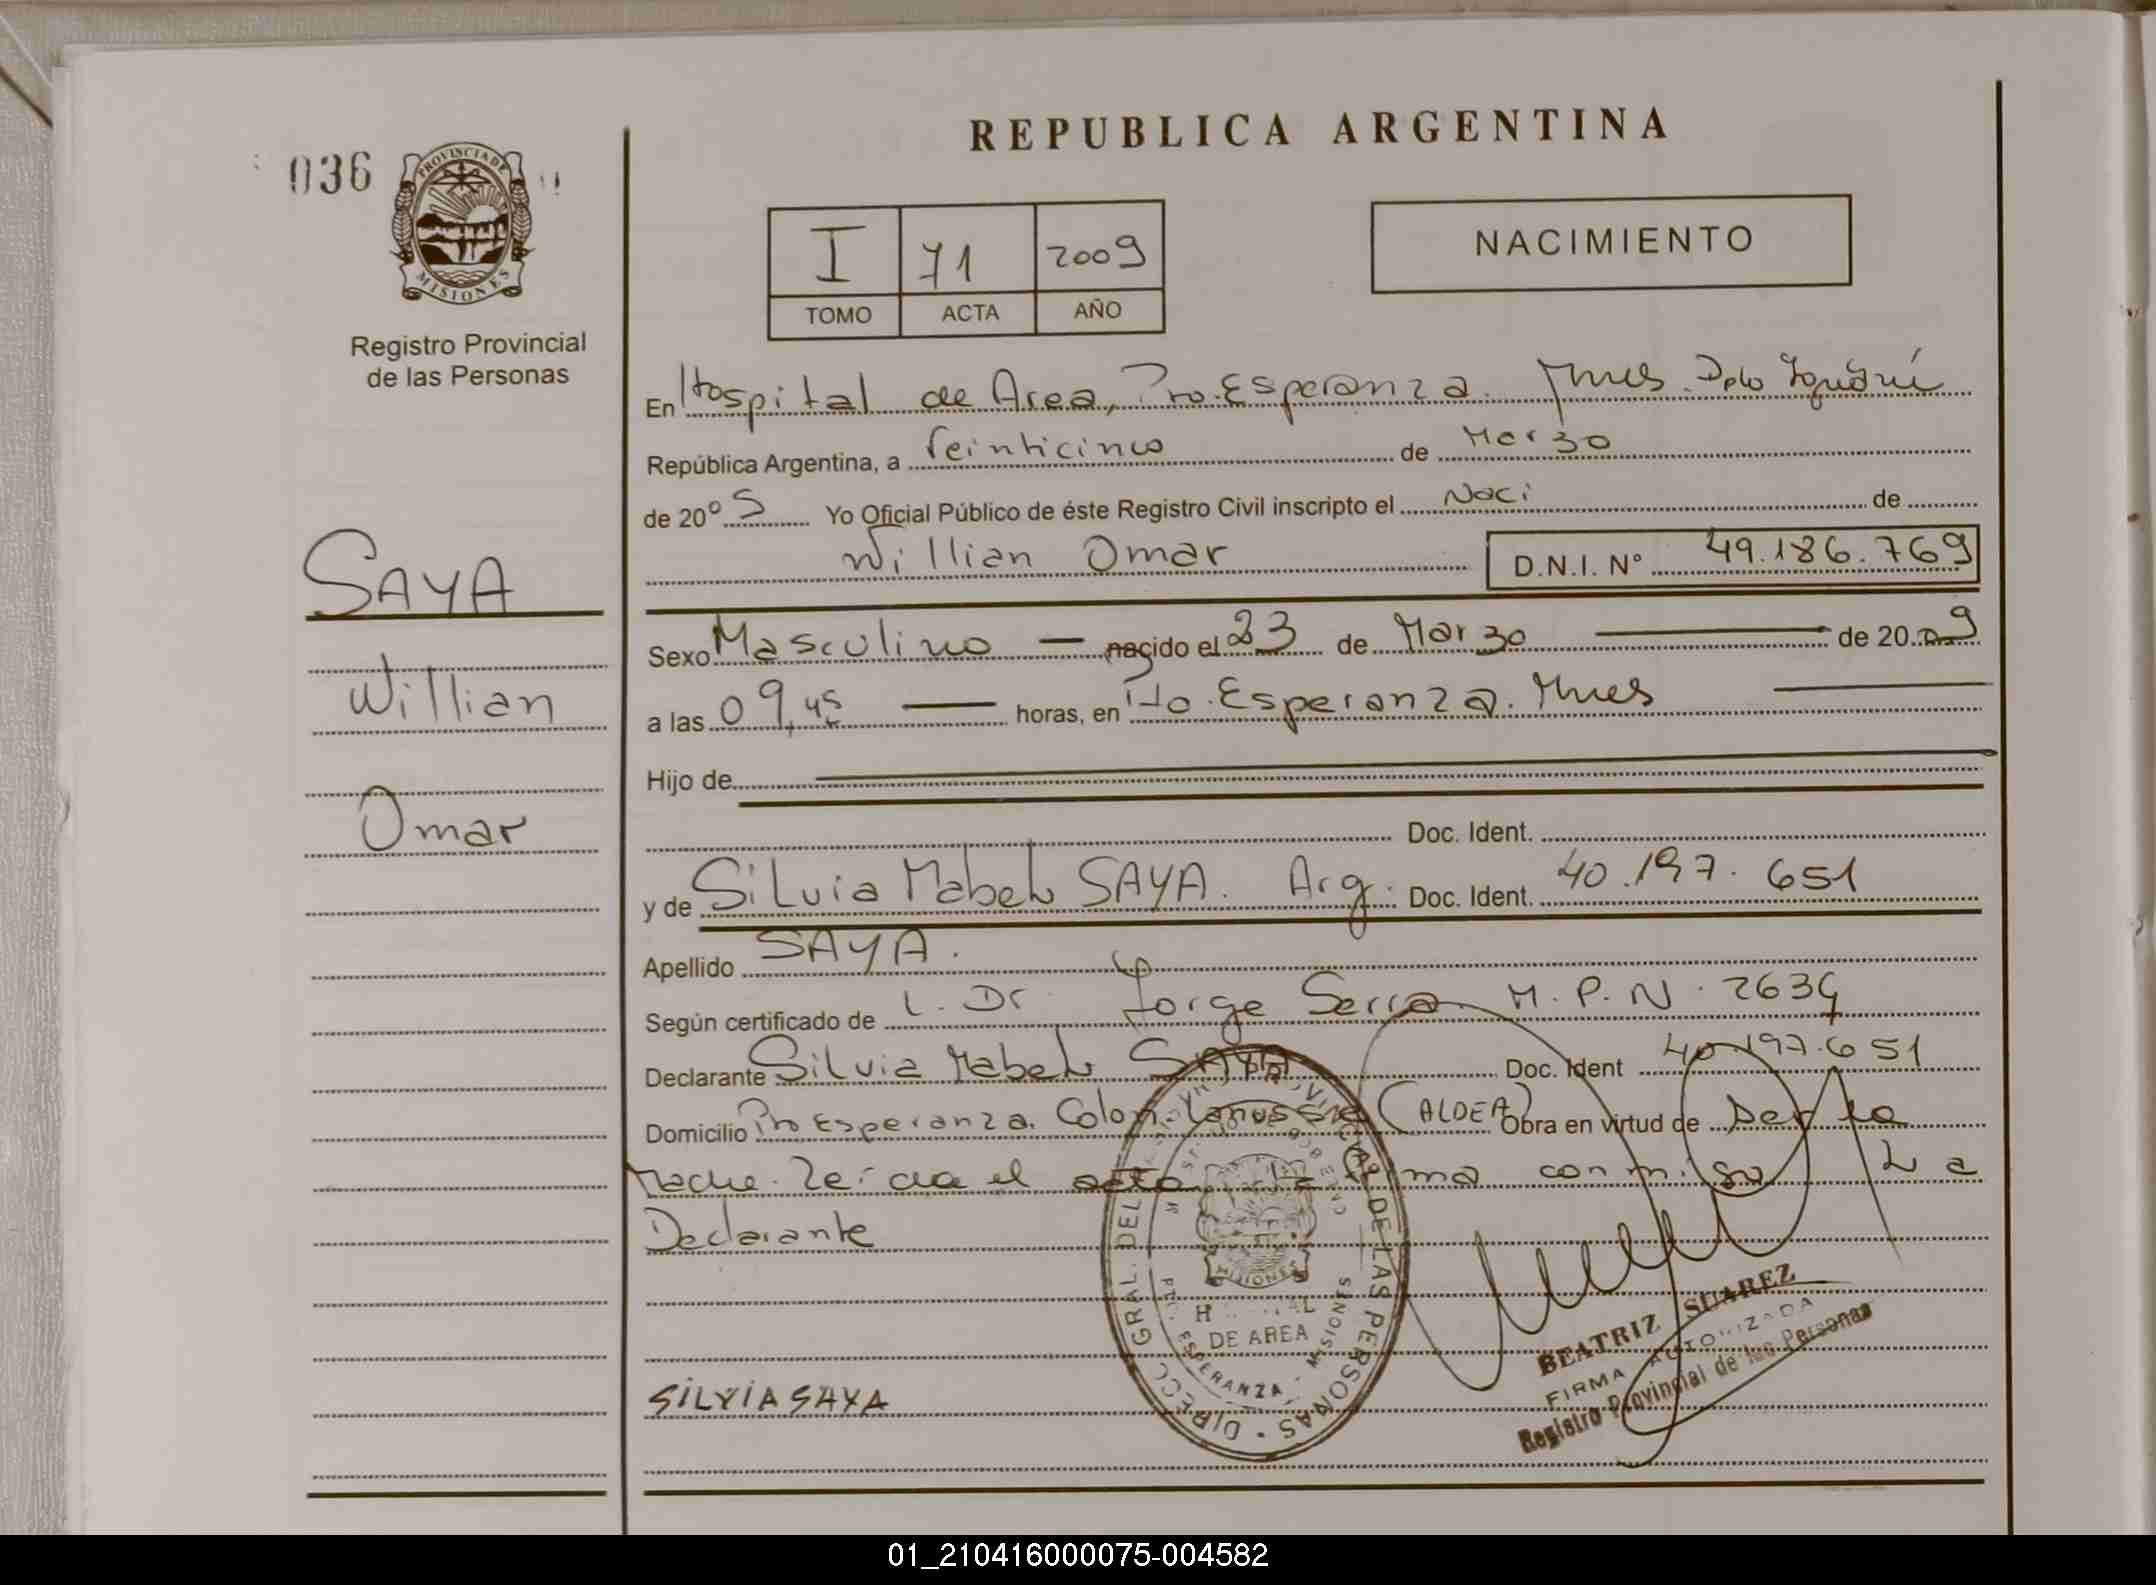 REPUBLICA ARGENTINA
036
PROVINCIA DE MISIONES
Registro Provincial
de las Personas
I 71 2009
TOMO ACTA AÑO
NACIMIENTO
En Hospital de Area, Pto. Esperanza. Mnes. Dpto Iguazú
República Argentina, a Veinticinco de Marzo
de 20 09 Yo Oficial Público de éste Registro Civil inscripto el Naci de
Willian Omar D.N.I. N° 49.186.769
SAYA
Willian
Omar
Sexo Masculino nacido el 23 de Marzo de 20 09
a las 09,45 horas, en Pto. Esperanza. Mnes
Hijo de
Doc. Ident.
y de Silvia Mabel SAYA. Arg. Doc. Ident. 40.197.651
Apellido SAYA.
Según certificado de L. Dr. Jorge Serra M.P.N. 2634
Declarante Silvia Mabel SAYA Doc. Ident 40.197.651
Domicilio Pto Esperanza. Colon. Lanusse (ALDEA) Obra en virtud de Ser la
Madre. Leída el acta la firma conmigo La
Declarante
SILVIA SAYA
DIRECC. GRAL. DEL DE LAS PERSONAS
MISIONES
DE AREA
ESPERANZA - MISIONES
BEATRIZ SUAREZ
FIRMA AUTORIZADA
Registro Provincial de las Personas
01_210416000075-004582